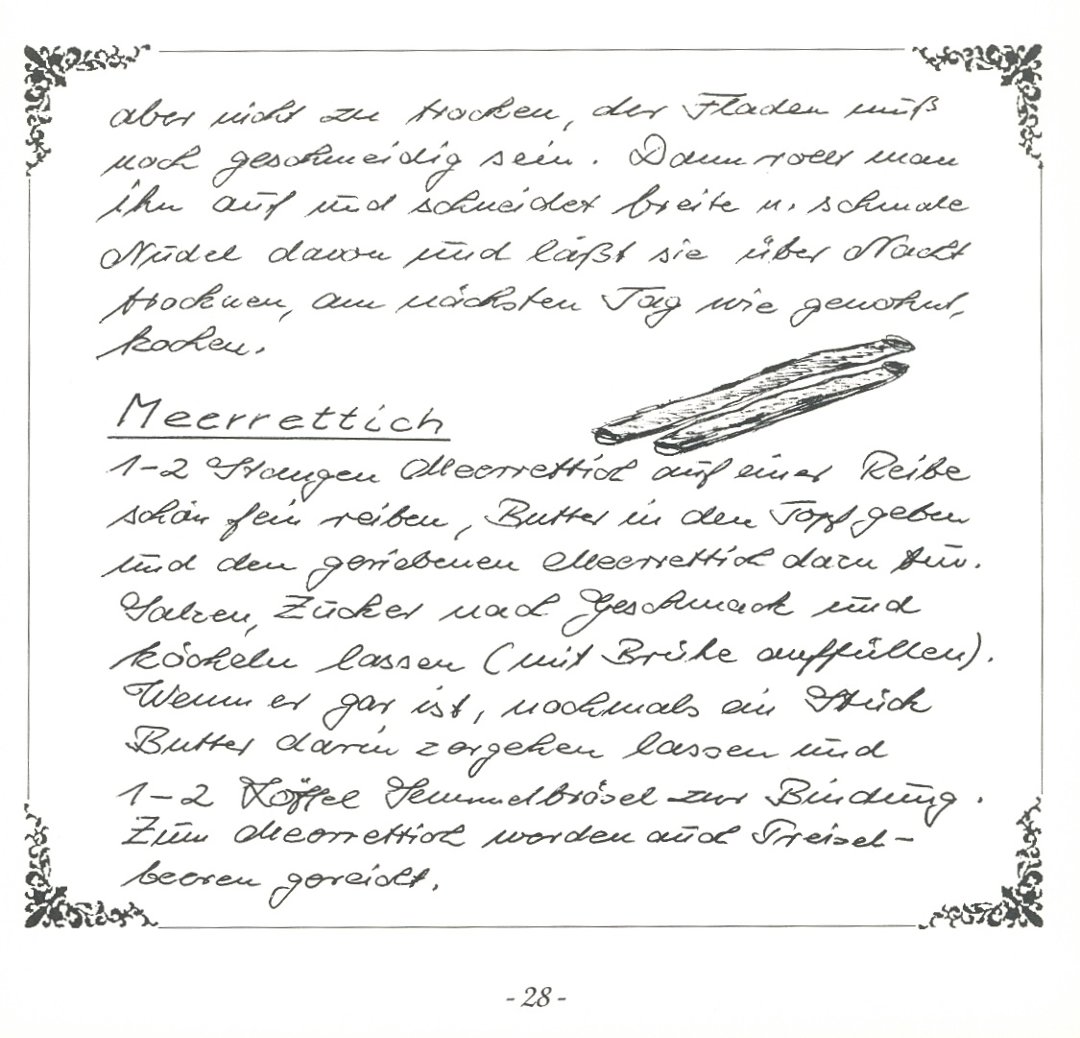 aber nicht zu trocken, der Fladen muß
noch geschmeidig sein. Dann rollt man
ihn auf und schneidet breite u. schmale
Nudel davon und läßt sie über Nacht
trocknen, am nächsten Tag wie gewohnt,
kochen.
Meerrettich
1-2 Stangen Meerrettich auf einer Reibe
schön fein reiben, Butter in den Topf geben
und den geriebenen Meerrettich dazu tun.
Salzen, Zucker nach Geschmack und
köcheln lassen (mit Brühe auffüllen).
Wenn er gar ist, nochmals ein Stück
Butter darin zergehen lassen und
1-2 Löffel Semmelbrösel zur Bindung.
Zum Meerrettich werden auch Preisel-
beeren gereicht.
- 28 -